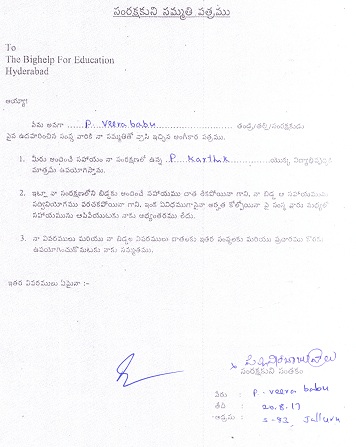 సంరక్షకుని సమ్మతి పత్రము
To
The Bighelp For Education
Hyderabad
అయ్యా!
నేను అనగా P. Veera babu తండ్రి/తల్లి/సంరక్షకుడు
పైన ఉదహరించిన సంస్థ వారికి నా సమ్మతితో వ్రాసి ఇచ్చిన అంగీకార పత్రము.
1. మీరు అందించే సహాయం నా సంరక్షణలో ఉన్న P. Karthik యొక్క
మాత్రమే ఉపయోగిస్తాను.
2. ఇట్లా నా సంరక్షణలోని బిడ్డకు అందించే సహాయము దాత గాని, నా బిడ్డ ఆ సహాయమును
సద్వినియోగము పరచకపోయినా గాని, ఇంక ఏవిధముగానైనా అర్హత కోల్పోయినా పై సంస్థ వారు మధ్యలో
సహాయమును ఆపివేయుటకు నాకు అభ్యంతరము లేదు.
3. నా వివరములు మరియు నా బిడ్డల వివరములు దాతలకు ఇతర సంస్థలకు మరియు
ఉపయోగించుకొనుటకు నాకు సమ్మతము.
ఇతర వివరములు ఏమైనా :-
సంరక్షకుని సంతకం
పేరు : P. veera babu
తేది : 20.8.17
: 5-93, Jalluru